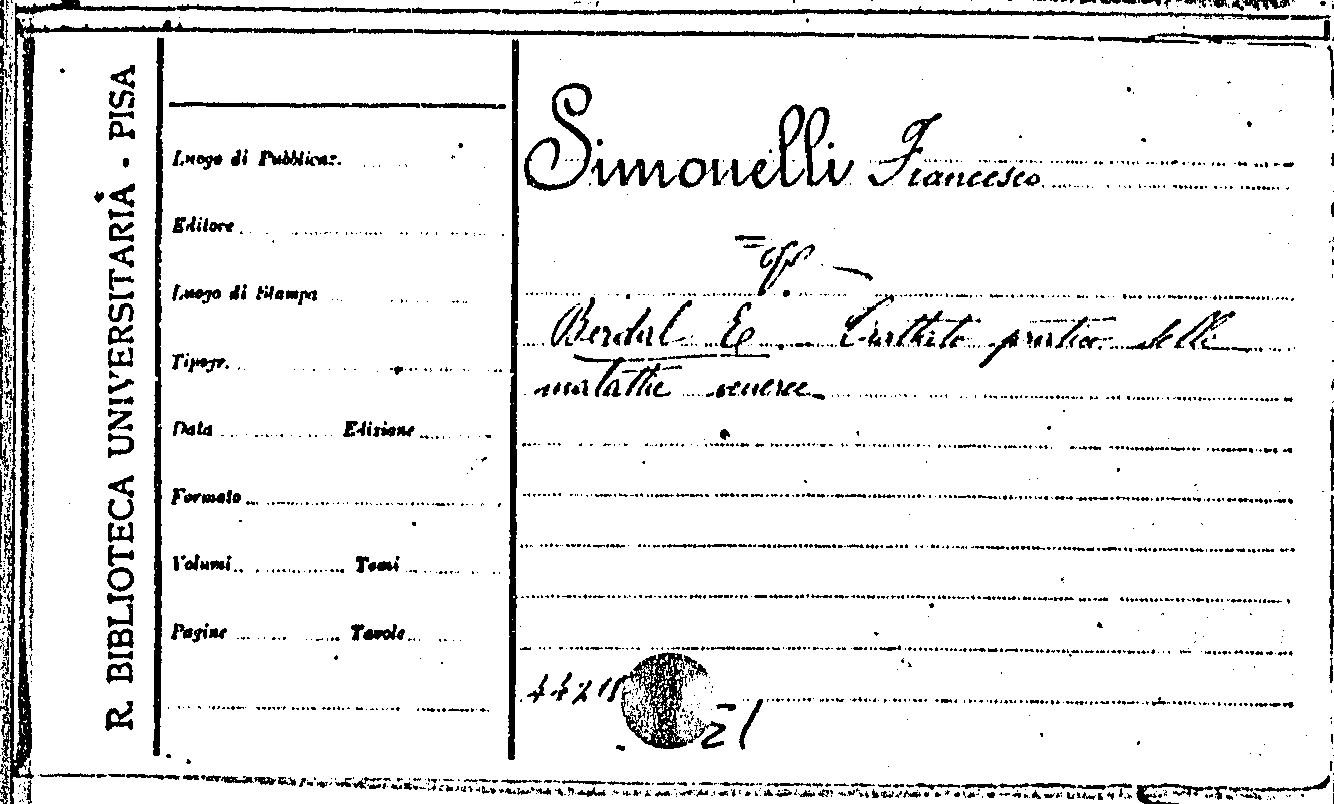 R. BIBLIOTECA UNIVERSITARIA - PISA
Luogo di Pubblicaz.
Editore
Luogo di Stampa
Tipogr.
Data Edizione
Formato
Volumi Tomi
Pagine Tavole
Simonelli Francesco
Berdal E. - Trattato pratico delle
malattie veneree
21